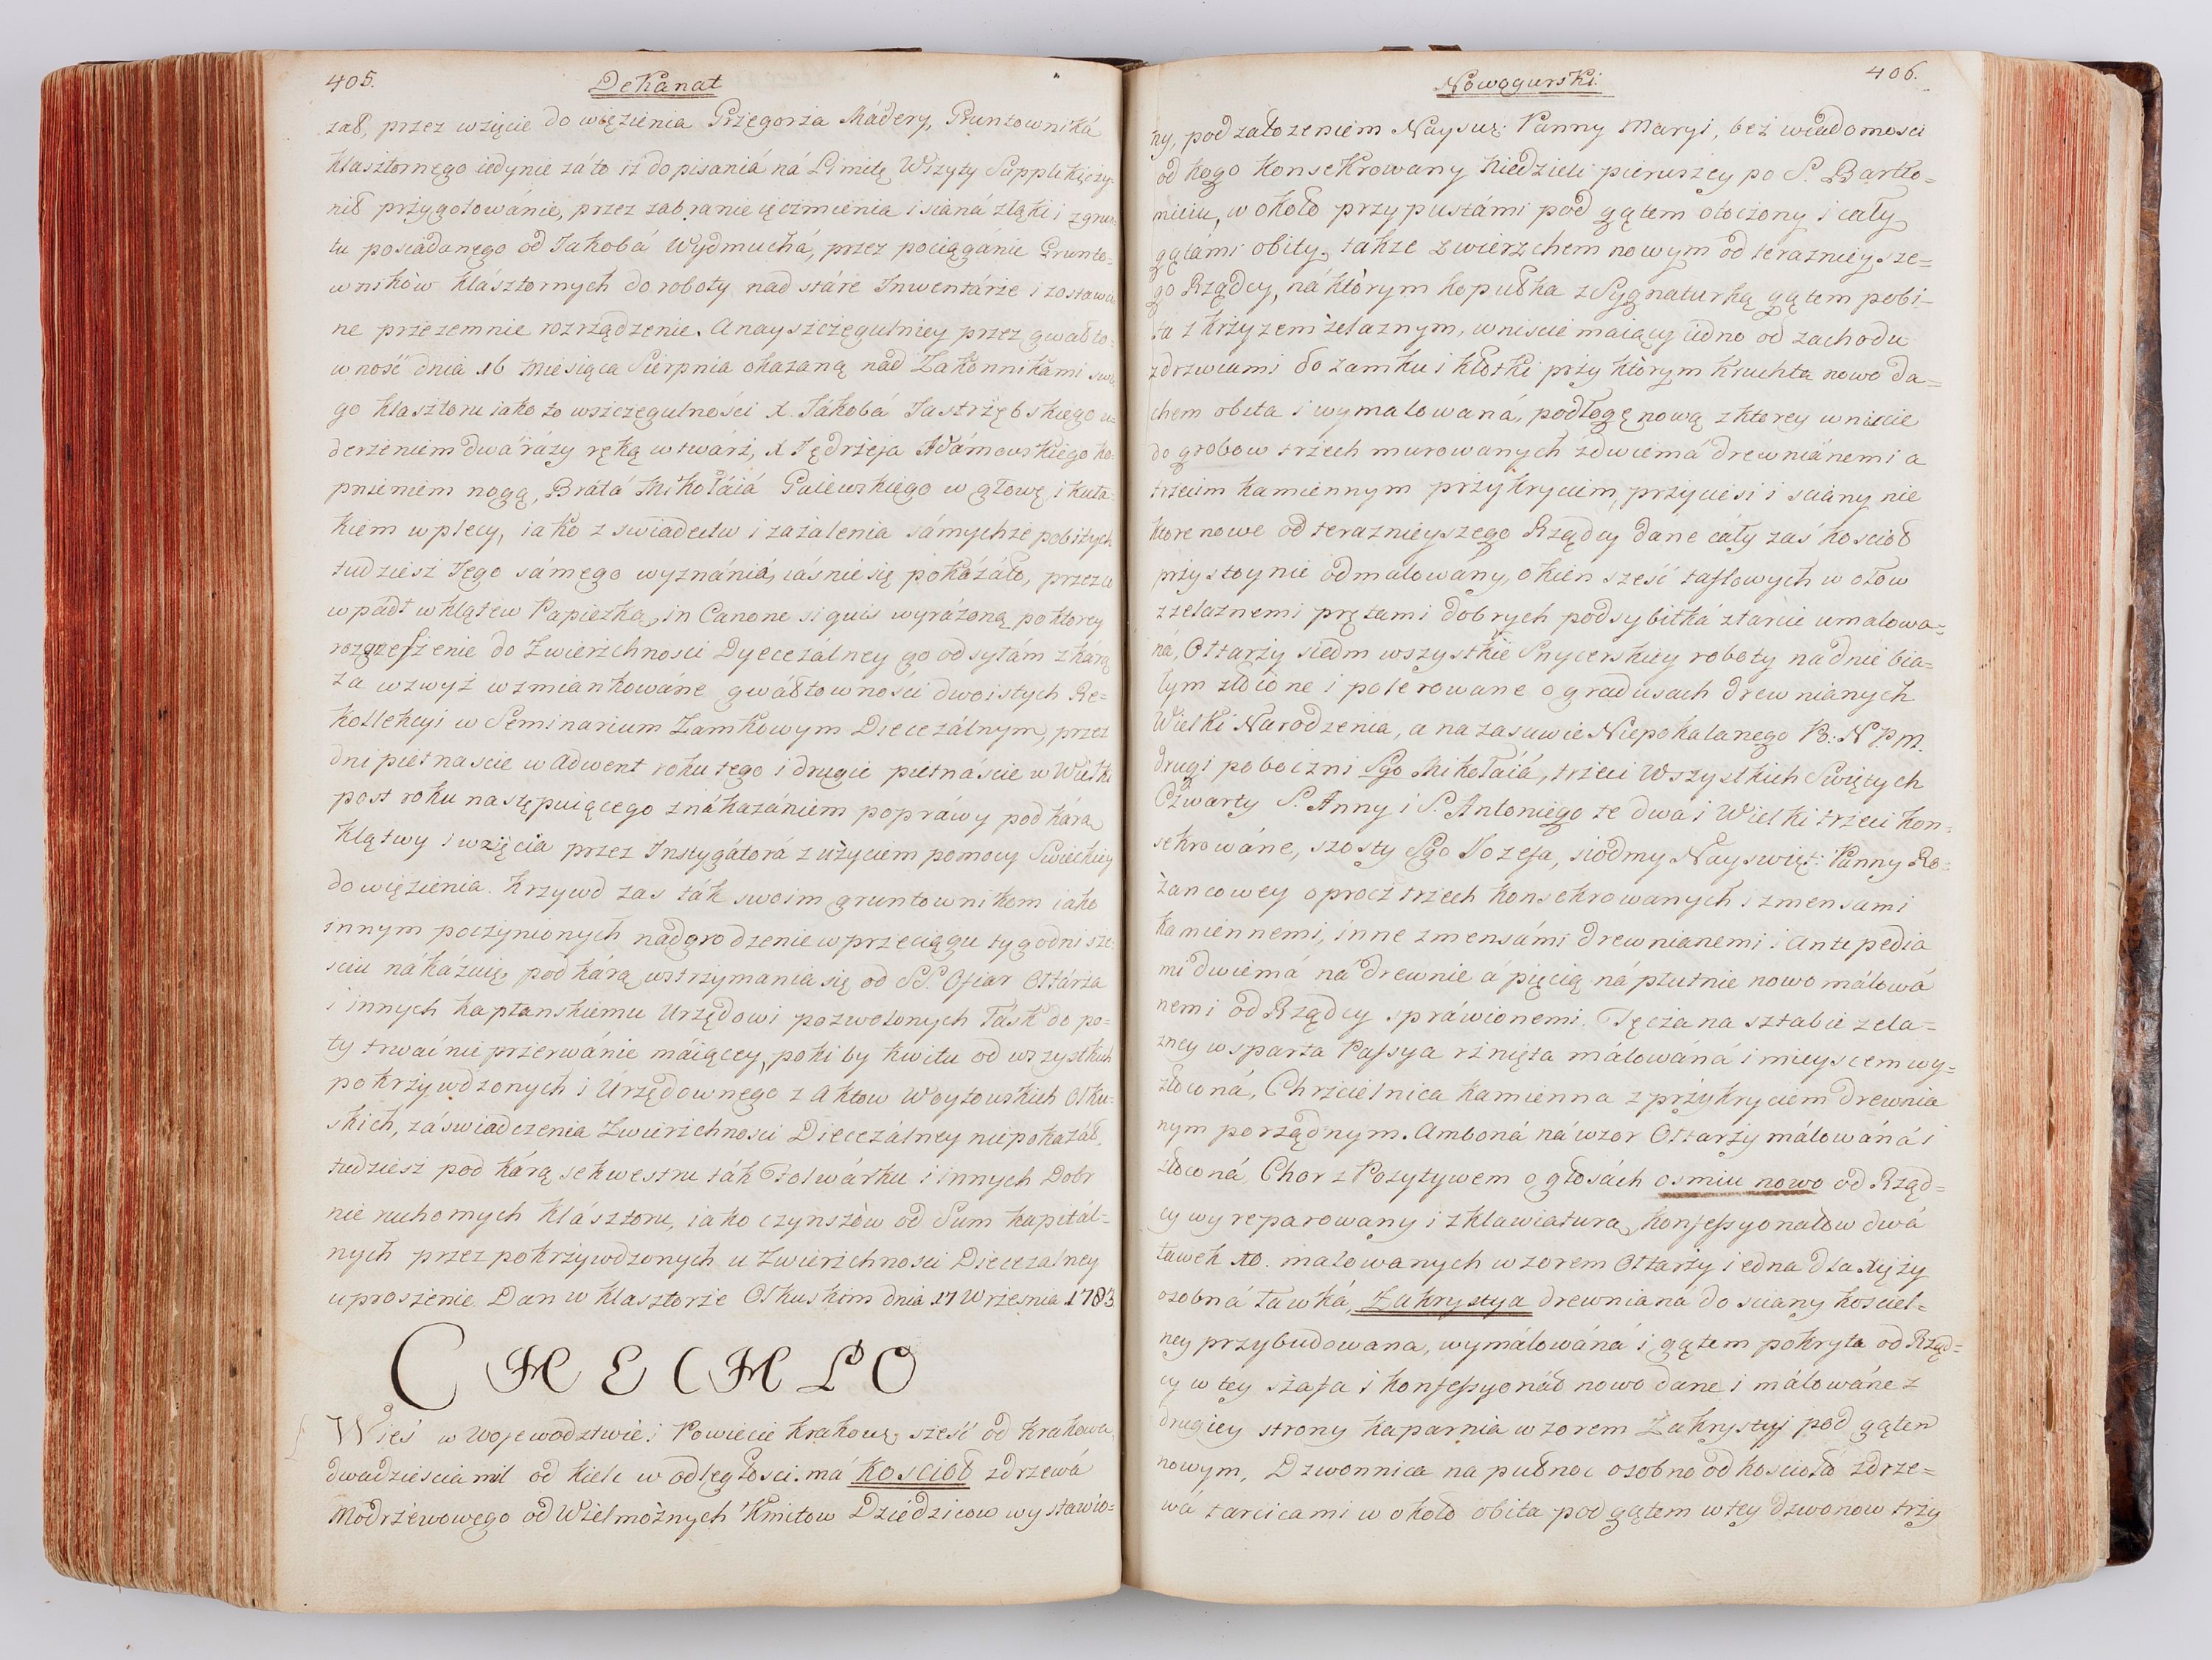 405.
Dekanat
zał, przez wzięcie do więzienia Grzegorza Mádery, Gruntowniká
klasztornego iedynie záto iż do pisaniá ná Limitę Wizyty Supplikię czy-
nił przygotowánie, przez zabranie ięczmienia i sianá złąki i zgrun
tu posiadanego od Iakobá Wydmuchá, przez pociągánie Grunto-
wników klásztornych do roboty nad stáre Inwentárze i zostawio
ne przezemnie rozrządzenie. A nayszczegulniey przez gwałto-
wność dnia 16 Miesiąca Sierpnia okazaną nad Zakonnikámi swe
go klasztoru iako to wszczegulności X. Iákobá Iastrzębskiego u-
derzeniem dwá rázy ręką w twárz, X Iędrzeja Adámowskiego ko-
pnieniem nogą, Bratá Mikołáiá Gaiewskiego w głowę i kuła-
kiem w plecy, iako z swiadectw i zażalenia sámychże pobitych
tudziesz Iego sámego wyznániá, iásnie się pokázáło, przez co
wpádł w klątew Papiezką, in Canone si quis wyrázoną, po ktorey
rozgrzeszenie do Zwierzchnosci Dyecezálney go odsyłám z kárą
za wzwyż wzmiankowáne gwáłtowności dwoistych Re-
kollekcyi w Seminarium Zamkowym Diecezálnym, przez
dni piętnascie w Adwent roku tego i drugie piętnáście w Wielki
post roku następuiącego z nákazániem poprawy pod kárą
klątwy i wzięcia przez Instygátorá z użyciem pomocy Swieckiey
do więzienia. Krzywd zas ták swoim gruntownikom iako
innym poczynionych nadgrodzenie w przeciągu tygodni sze-
sciu nákázuię pod kárą wstrzymania się od SS. Ofiar Ołtárza
i innych kapłanskiemu Urzędowi pozwolonych Łásk do po-
ty trwać nieprzerwánie máiącey, poki by kwitu od wszystkich
pokrzywdzonych i Urzędownego z Aktow Woytowskich Olku-
skich, záswiadczenia Zwierzchnosci Diecezálney niepokazáł,
tudziesz pod kárą sekwestru ták Folwárku i innych Dobr
nie ruchomych klásztoru, iako czynszów od Sum kapitál-
nych przez pokrzywdzonych u Zwierzchnosci Diecezalney
uproszenie. Dan w Klasztorze Olkuskim dnia 17 Wrzesnia 1783
CHECHŁO
Wieś w Wojewodztwie i Powiecie Krakows: sześć od Krakowa,
dwadzieścia mil od Kielc w odległosci. má Kosciół z drzewá
Modrzewowego od Wielmożnych Kmitow Dziedzicow wystawio-
Nowogurski.
406.
ny, pod założeniem Nayśw: Panny Maryi, bez wiadomosci
od kogo konsekrowany Niedzieli pierwszey po S. Bartło-
mieiu, w około przypustámi pod gątem otoczony i cały
gątámi obity, takze z wierzchem nowym od teraznieysze-
go Rządcy, ná którym kopułka z Sygnaturką gątem pobi-
ta z krzyzem żelaznym, wniscie maiący iedno od zachodu
z drzwiami do zamku i kłotki przy którym kruchta nowo da-
chem obita i wymalowaná, podłogę nową z ktorey wniscie
do grobow trzech murowanych z dwiemá drewniánemi a
trzecim kamiennym przykryciem, przyciesi i sciany nie
ktore nowe od teraznieyszego Rządcy dane cáły zás kosciół
przystoynie odmálowány, okien sześć taflowych w ołow
z żelaznemi prętami dobrych podsybitká ztarcie umalowa-
ná, Ołtarzy siedm wszystkie Snycerskiey roboty na dnie bia-
łym złocone i polerowane o gradusach drewnianych
Wielki Narodzenia, a na zasuwie Niepokalanego B: N P.M.
drugi poboczni Sgo Mikołáiá, trzeci Wszystkich Swiętych
Czwarty S. Anny i S. Antoniego te dwa i Wielki trzeci kon-
sekrowáne, szosty Sgo Iozefa, siodmy Nayswięt: Panny Ro-
żancowey oprocz trzech konsekrowanych i z mensami
kamiennemi, inne z mensámi drewnianemi i Antepedia
mi dwiemá ná drewnie á pięcią ná płutnie nowo málowá
nemi od Rządcy spráwionemi. Tęcza na sztabie zela-
zney wsparta Passya rznięta málowáná i mieyscem wy-
złoconá, Chrzcielnica kamienna z przykryciem drewnia
nym porządnym. Amboná ná wzor Ołtarzy málowáná i
złoconá, Chor z Pozytywem o głosách osmiu nowo od Rząd-
cy wyreparowany i z klawiaturą, konfessyonałow dwá
ławek 10. malowanych wzorem Ołtarzy i edna dla Xięży
osobná ławká, Zakrystya drewnianá do sciany kosciel-
ney przybudowana, wymálowáná i gątem pokryta od Rząd-
cy w tey szafa i konfessyonáł nowo dane i málowáne z
drugiey strony kaparnia wzorem Zakrystyi pod gątem
nowym, Dzwonnica na pułnoc osobno od kościołá z drze-
wá tarcicami w około obita pod gątem w tey dzwonow trzy